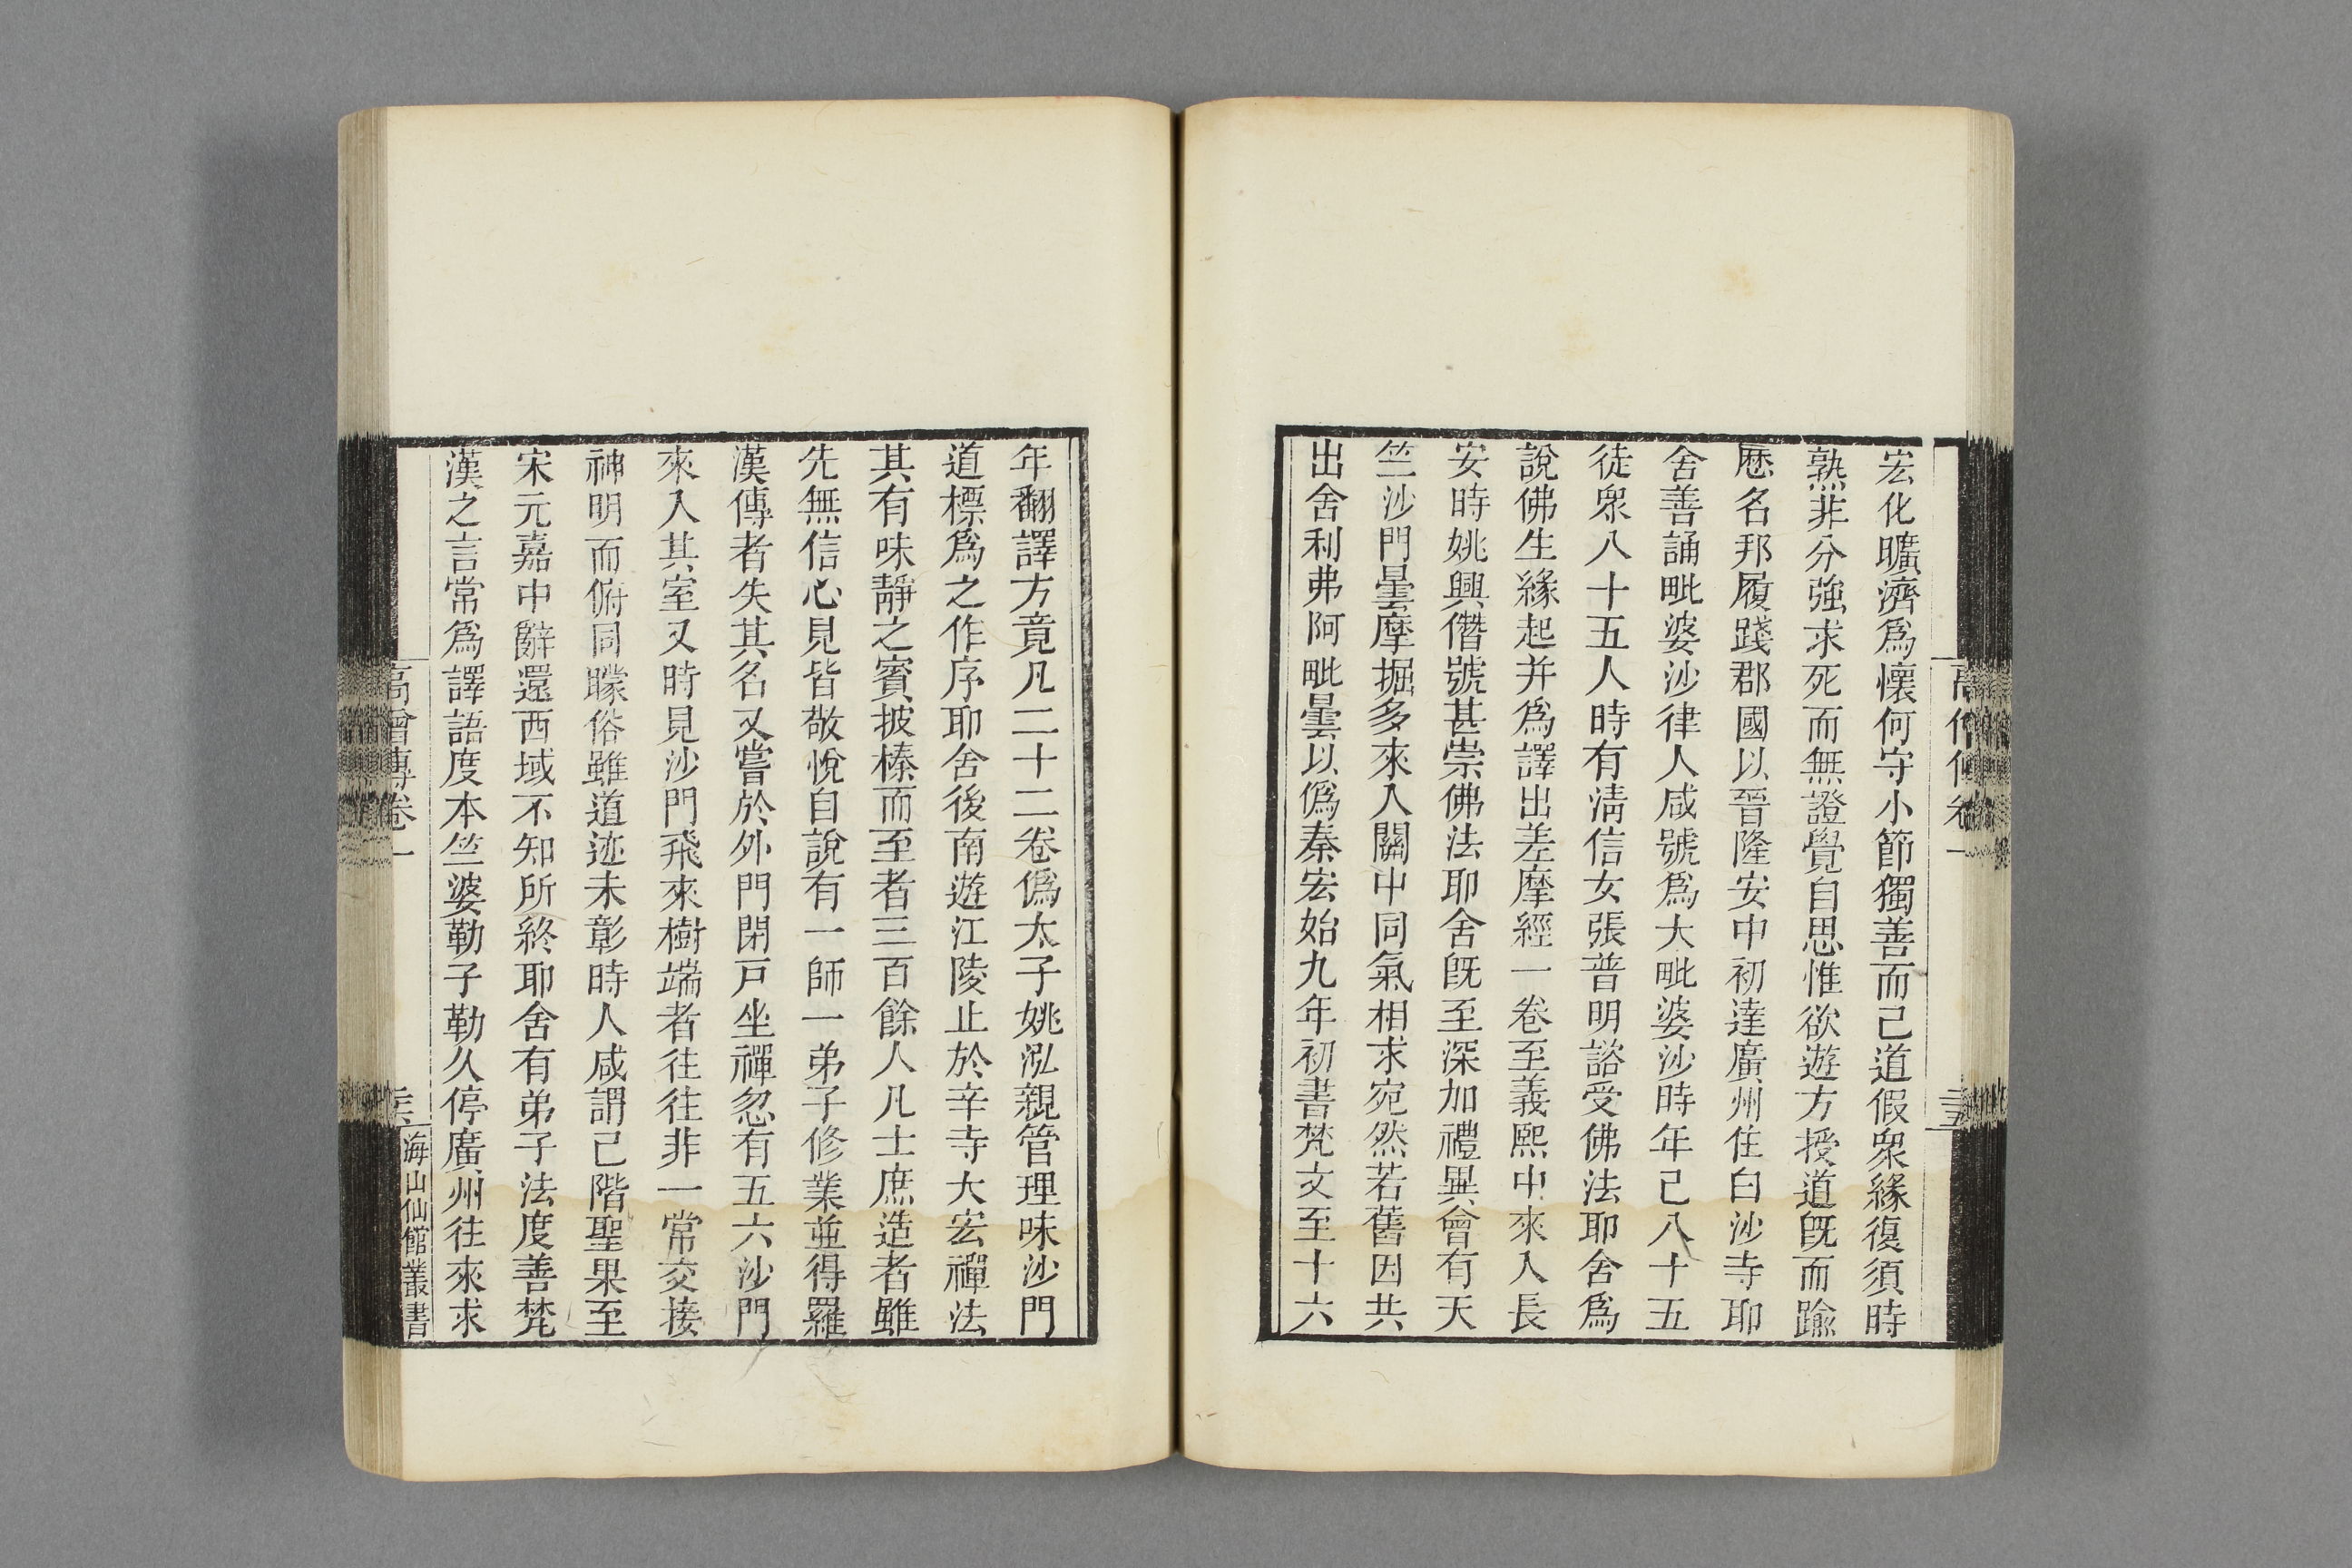 宏化曠濟爲懷何守小節獨善而己道假衆緣復須時
熟非分強求死而無證覺自思惟欲遊方授道旣而踰
歷名邦履踐郡國以晉隆安中初達廣州住白沙寺耶
舍善誦毗婆沙律人咸號爲大毗婆沙時年己八十五
徒衆八十五人時有淸信女張普明諮受佛法耶舍爲
說佛生緣起并爲譯出差摩經一卷至義熙中來入長
安時姚興僭號甚崇佛法耶舍旣至深加禮異會有天
竺沙門曇摩掘多來入關中同氣相求宛然若舊因共
出舍利弗阿毗曇以僞秦宏始九年初書梵文至十六
年翻譯方竟凡二十二卷僞太子姚泓親管理味沙門
道標爲之作序耶舍後南遊江陵止於辛寺大宏禪法
其有味靜之賓披榛而至者三百餘人凡士庶造者雖
先無信心見皆敬悅自說有一師一弟子修業並得羅
漢傳者失其名又嘗於外門閉戸坐禪忽有五六沙門
來入其室又時見沙門飛來樹端者往往非一常交接
神明而俯同矇俗雖道迹未彰時人咸謂己階聖果至
宋元嘉中辭還西域不知所終耶舍有弟子法度善梵
漢之言常爲譯語度本竺婆勒子勒久停廣州往來求
高僧傳卷一
海山仙館叢書